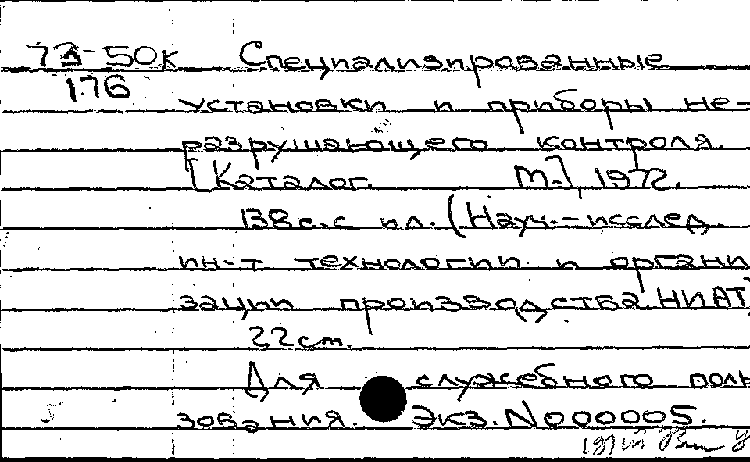 73-50к Специализированные
176
установки и приборы не-
разрушающего контроля.
[Каталог. М.], 1972.
138 с. с ил. (Науч.-исслед.
ин-т технологии и органи
зации производства НИАТ)
22 см.
Для служебного поль
зования. Экз. N 000005.